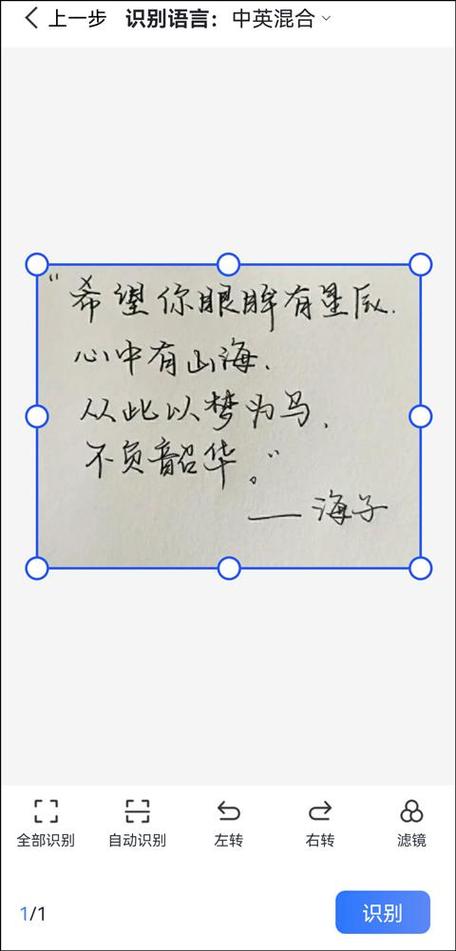 上一步 识别语言：中英混合
“希望你眼眸有星辰.
心中有山海.
从此以梦为马.
不负韶华。”
——海子
全部识别 自动识别 左转 右转 滤镜
1/1 识别